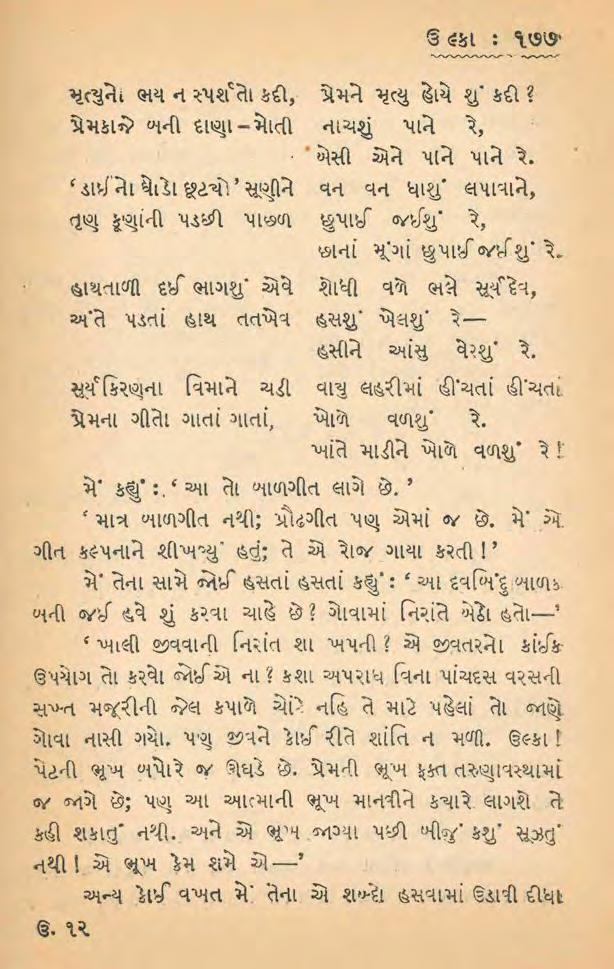 ઉલ્કા : ૧૭૭
મૃત્યુનો ભય ન સ્પર્શતો કદી, પ્રેમને મૃત્યુ હોયે શું કદી ?
પ્રેમકાજે બની દાણા–મોતી નાચશું પાને રે,
બેસી એને પાને પાને રે.
‘ ડાઈનો ઘોડો છૂટ્યો ’ સૂણીને વન વન ધાશું લપાવાને,
તૃણ કૂણાંની પડછી પાછળ છુપાઈ જઈશું રે,
છાનાં મૂંગાં છુપાઈ જઈશું રે.
હાથતાળી દઈ ભાગશું એવે શોધી વળે ભલે સૂર્યદેવ,
અંતે પડતાં હાથ તતખેવ હસશું ખેલશું રે—
હસીને આંસુ વેરશું રે.
સૂર્યકિરણના વિમાને ચડી વાયુ લહરીમાં હીંચતાં હીંચતાં
પ્રેમના ગીતો ગાતાં ગાતાં, ખોળે વળશું રે.
ખાંતે માડીને ખોળે વળશું રે !
મેં કહ્યું : ‘ આ તો બાળગીત લાગે છે. ’
‘ માત્ર બાળગીત નથી; પ્રૌઢગીત પણ એમાં જ છે. મેં એ
ગીત કલ્પનાને શીખવ્યું હતું; તે એ રોજ ગાયા કરતી ! ’
મેં તેના સામે જોઈ હસતાં હસતાં કહ્યું : ‘ આ દવબિંદુ બાળક
બની જઈ હવે શું કરવા ચાહે છે ? ગોવામાં નિરાંતે બેઠો હતો—’
‘ ખાલી જીવવાની નિરાંત શા ખપની ? એ જીવતરનો કાંઈક
ઉપયોગ તો કરવો જોઈએ ના ? કશા અપરાધ વિના પાંચદસ વરસની
સખ્ત મજૂરીની જેલ કપાળે ચોંટે નહિ તે માટે પહેલાં તો જાણે
ગોવા નાસી ગયો. પણ જીવને કોઈ રીતે શાંતિ ન મળી. ઉલ્કા !
પેટની ભૂખ બપોરે જ ઊઘડે છે. પ્રેમની ભૂખ ફક્ત તરુણાવસ્થામાં
જ જાગે છે; પણ આ આત્માની ભૂખ માનવીને ક્યારે લાગશે તે
કહી શકાતું નથી. અને એ ભૂખ જાગ્યા પછી બીજું કશું સૂઝતું
નથી ! એ ભૂખ કેમ શમે એ—’
અન્ય કોઈ વખત મેં તેના એ શબ્દો હસવામાં ઉડાવી દીધા
ઉ. ૧૨